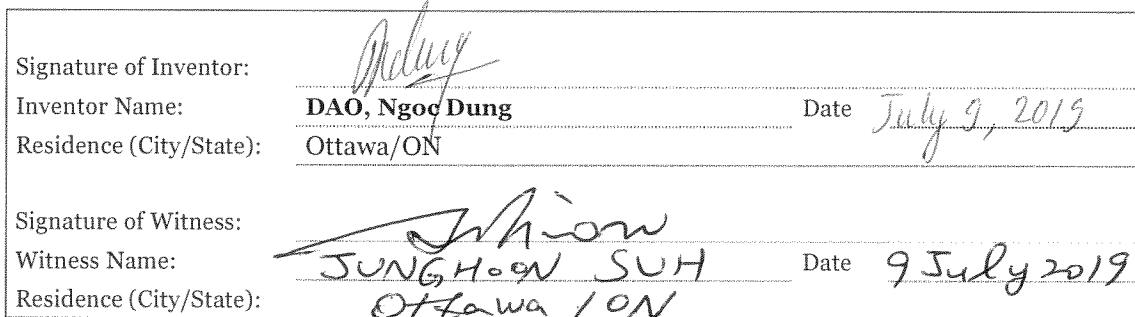 Signature of Inventor:
Inventor Name: DAO, Ngoc Dung Date July 9, 2019
Residence (City/State): Ottawa/ON
Signature of Witness:
Witness Name: JUNGHOON SUH Date 9 July 2019
Residence (City/State): Ottawa / ON